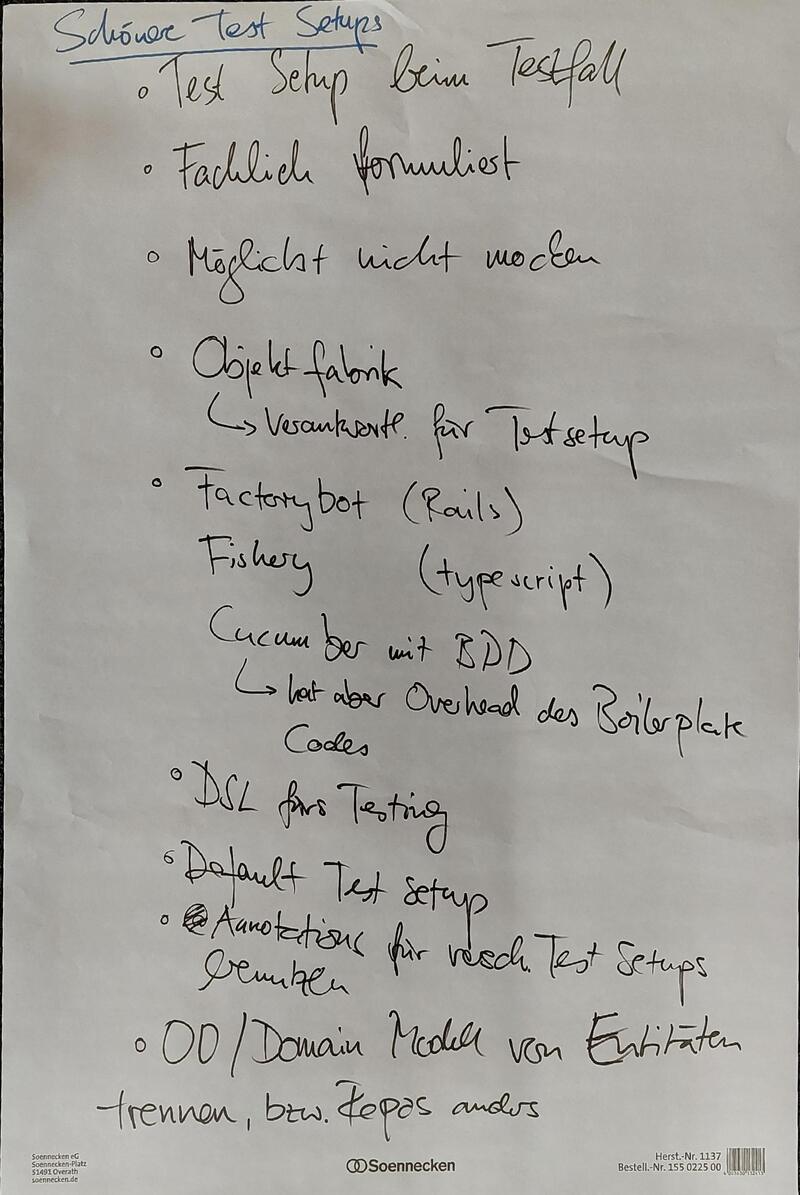 Schöner Test Setups
° Test Setup beim Testfall
° Fachlich formuliert
° Möglichst nicht mocken
° Objektfabrik
↳ Verantwortl. für Testsetup
° Factorybot (Rails)
Fishery (typescript)
Cucumber mit BDD
↳ hat aber Overhead des Boilerplate
Codes
° DSL fürs Testing
° Default Test Setup
° Annotations für versch. Test Setups
benutzen
° OO/Domain Modell von Entitäten
trennen, bzw. Repos anders
Soennecken eG
Soennecken-Platz
51491 Overath
soennecken.de
Soennecken
Herst.-Nr. 1137
Bestell.-Nr. 155 0225 00